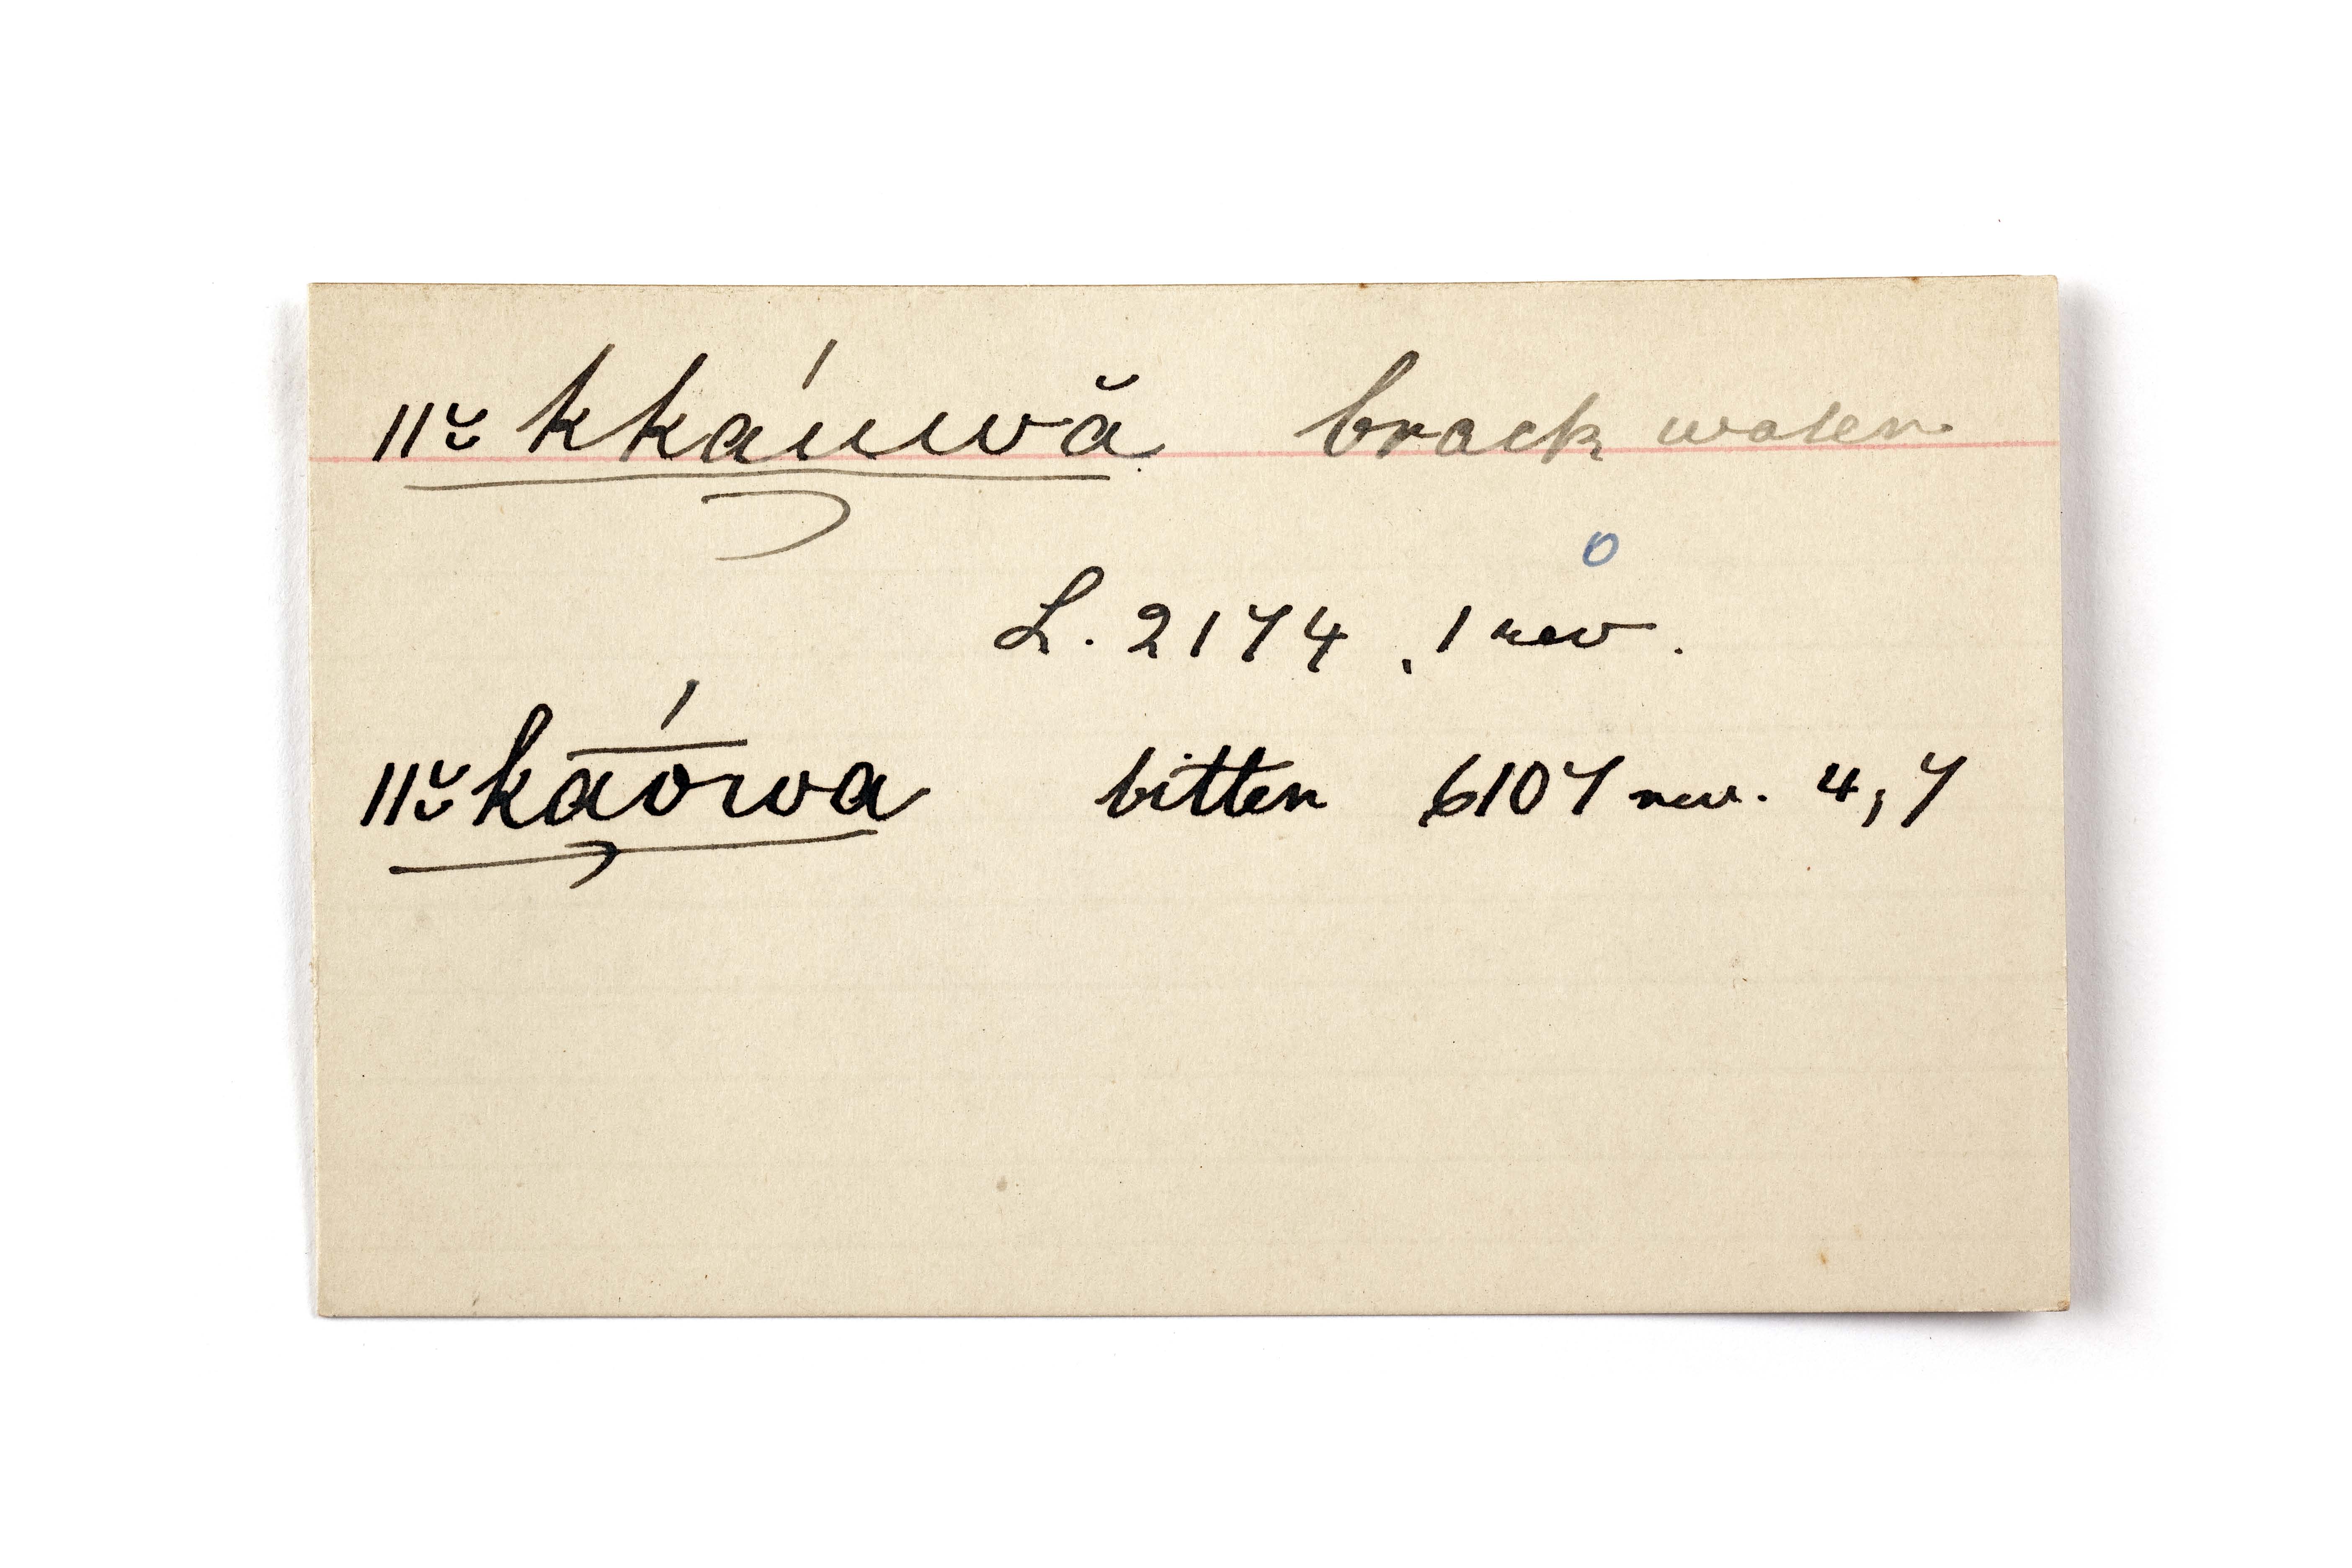 ǁ˘˷kkáuwă brack water
o
L. 2174, 1 rev.
ǁ˘˷kāówa bitter 6107 rev. 4, 7